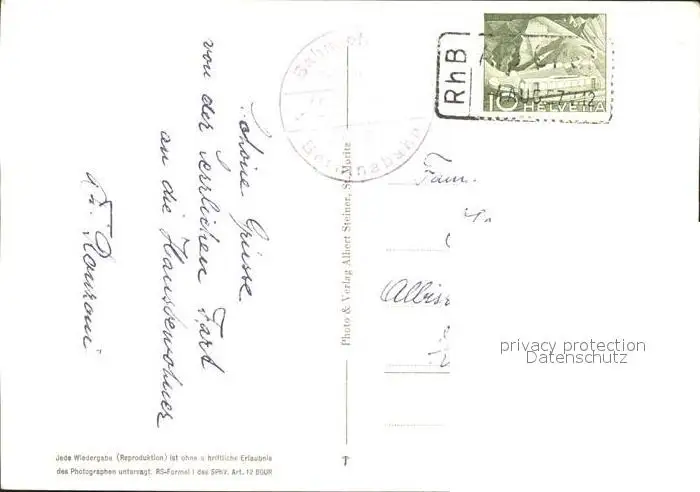 Schöne Grüsse
von der herrlichen Fart
an die Hausbewohner
Photo & Verlag Albert Steiner, St. Moritz
Jede Wiedergabe (Reproduktion) ist ohne schriftliche Erlaubnis
des Photographen untersagt. RS-Formel I des SPhV. Art. 12 BGUR
Bahnhof
Berninabahn
RhB
10 HELVETIA
Fam.
Albis
privacy protection
Datenschutz